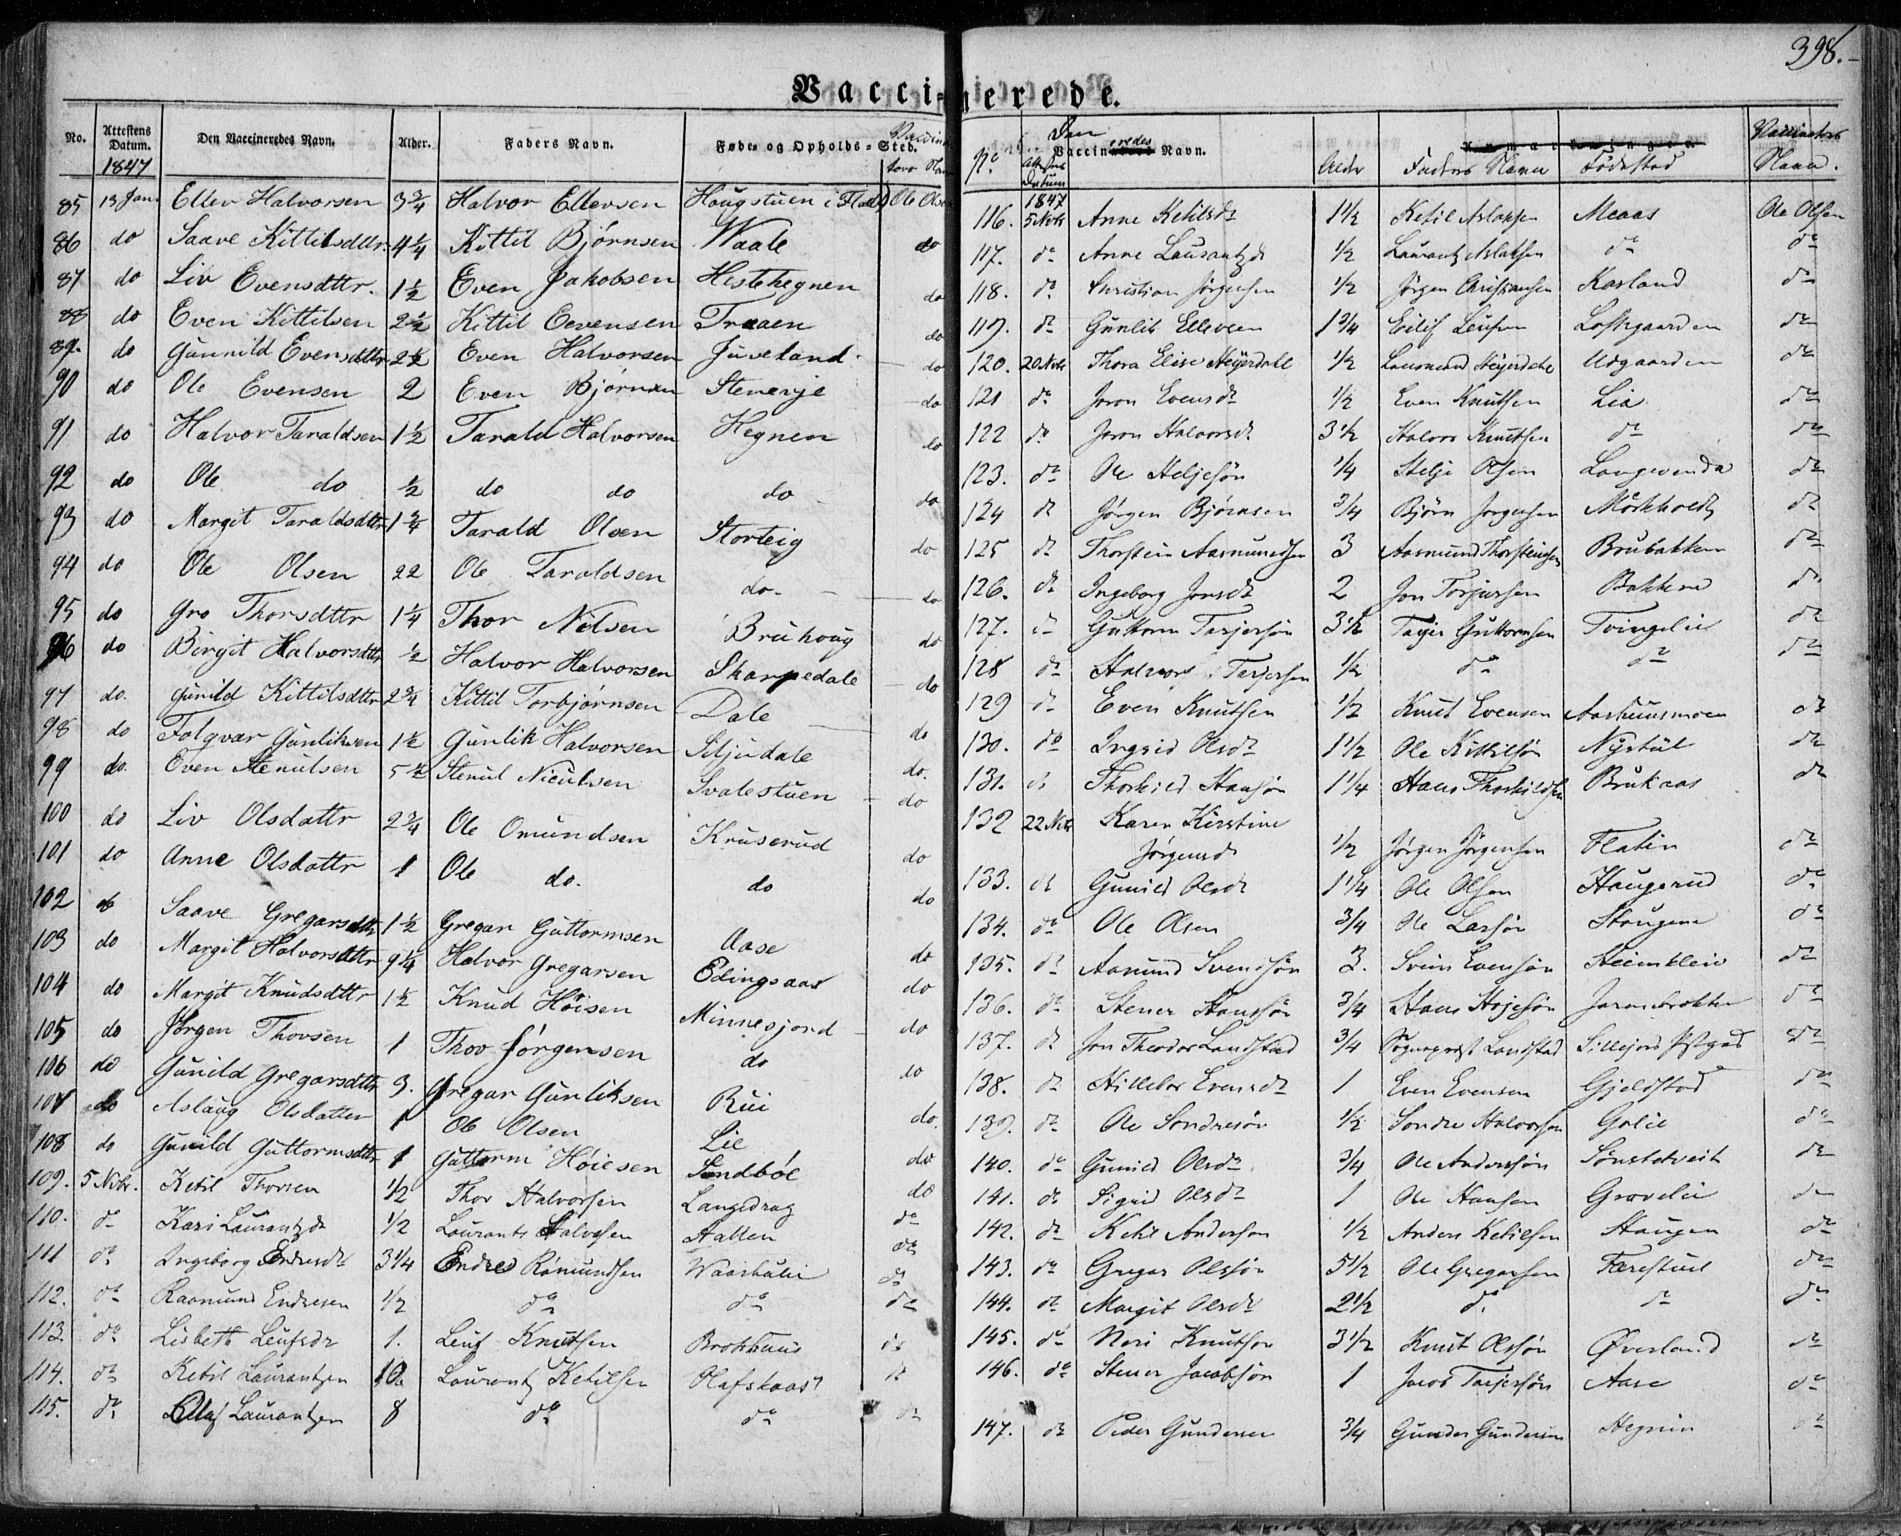 398.
Vaccinerede.
No. Attestens Datum. Den Vaccineredes Navn. Alder. Faders Navn. Føde- og Opholds-Sted.
1847
85 13 Jan. Ellev Halvorsen 3¾ Halvor Ellevsen Haugstuen i Ole Olsen
86 do Saave Kittilsdttr. 4¼ Kittil Bjørnsen Waale do
87 do Liv Evensdttr. 1½ Even Jakobsen Hestehegnen do
88 do Even Kittilsen 2½ Kittil Eevensen Traaen do
89. do Gunnild Evensdttr 2½ Even Halvorsen Juveland do
90 do Ole Evensen 2 Even Bjørnsen Stenerje do
91 do Halvor Taraldsen 1½ Tarald Halvorsen Hegnen do
92 do Ole do ½ do do do do
93 do Margit Taraldsdttr 1¾ Tarald Olsen Storteig do
94 do Ole Olsen 22 Ole Taraldsen do. do
95 do Gro Thorsdttr 1¼ Thor Nilsen Bruhaug do
96 do Birgit Halvorsdttr ½ Halvor Halvorsen Skarpedale do
97 do. Gunild Kittilsdttr 2¾ Kittil Torbjørnsen Dale do
98 do Folqvar Gunliksen 1½ Gunlik Halvorsen do.
99 do. Even Stenulsen 5½ Stenul Nieulsen Svalestuen do
100 do Liv Olsdattr 2¾ Ole Omundsen Kruserud do
101 do Anne Olsdattr 1 Ole do. do do
102 do Saave Gregarsdttr 1½ Gregar Guttormsen Aase do
103 do Margit Halvorsdttr 9¼ Halvor Gregarsen Edingsaas do
104 do Margit Knudsdttr 1½ Knud Høisen Minnesjord do
105 do Jørgen Thovsen 1 Thov Jørgensen do do
106 do Gunild Gregarsdttr 3. Gregar Gunliksen Rui do.
107 do Aslaug Olsdatter 1 Ole Olsen Lie do
108 do Gunild Guttormsdttr 1 Guttorm Høiesen Sundbøe do
109. 5 Nvbr. Ketil Thorsen ½ Thor Halvorsen Langedrag do
110. do Kari Laurantzdr ½ Laurants Halvorsen Hatten do
111 do Ingeborg Endresdr 3¼ Endre Rømundsen do
112. do Raamund Endresen ½ do do do
113. do Lisbeth Leufsdr 1. Leuf Knutsen Brokhuus do
114. do Ketil Laurantzen 10 Laurantz Ketilsen Olafskaas do
115. do Olaf Laurantzen 8 do do do
No Attestens Datum Den Vaccineredes Navn. Alder Faders Navn Fødested Vaccinateurs Navn.
1847
116. 5 Nvbr Anne Ketilsdr 1½ Ketil Aslaksen Moaas Ole Olsen
117. do Anne Laurantzdr ½ Laurantz Aslaksen do do
118. do Christian Jørgensen ½ Jørgen Christiansen Kasland do
119. do Gunlik Ellevsen 1¾ Loftsgaarden do
120. 20 Nvbr Thora Elise Heyerdahl ½ Heyerdahl Udgaarden do
121 do Joron Evensdr ½ Even Knutsen Lia do
122 do Joron Halvorsdr 3½ Halvor Knutsen do do
123. do Ole Heljesøn ¼ Helje Olsen do
124 do Jørgen Bjørnsen ¾ Bjørn Jørgensen do
125 do Thorstein Aasmundsen 3 Aasmund Thorsteinsen Brubakken do
126. do Ingeborg Jonsdr 2 Jon Torjersen Bakken do
127. do Guttorm Tarjersøn 3½ Guttormsen Tvingelie do
128 do Halvor Tarjersen ½ do do do
129 do Even Knutsen ½ Knut Evensen Aashuusmoen do
130. do Ingrid Olsdr 1½ Ole Kittilsøn Nystul do
131. do Thorkild Hansøn 1¼ Hans Thorkildsen Brukaas do
132 22 Nvbr Karen Kirstine
Jørgensdr ½ Jørgen Jørgensen Flatin do
133. do Gunild Olsdr 1¼ Ole Olsen Haugerud do
134. do Ole Olsen ¾ Ole Larsøn Haugene do
135. do Aanund Svensøn 3. Svein Evensøn do
136. do Stener Hanssøn ¾ Hans do
137. do Jon Theodor Landstad ¾ Sogneprest Landstad Sillejord do
138. do Hillebor Evensdr 1 Even Evensen Gjeldstad do
139. do Ole Sondresøn ½ Sondre Halvorsen Golie do
140. do Gunild Olsdr ¾ Ole Anderssøn Sønstetveit do
141. do Sigrid Olsdr 1 Ole Hansen Grovelie do
142. do Ketil Andersøn ½ Anders Ketilsen Haugen do
143. do Gregar Olssøn 5½ Ole Gregarsen Færestuel do
144. do Margit Olsdr 2½ do do do
145. do Neri Knutson 3½ Knut Olssøn Øverland do
146. do Stener Jacobsøn 1 Jacob Tarjersøn Aase do
147. do Peder Gundersen ¾ Gunder Gundersen Hegnin do